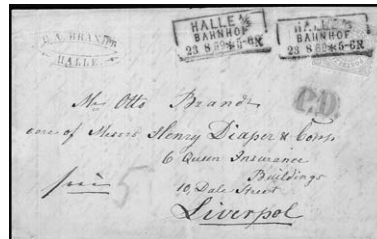 HALLE
HALLE a/S
BAHNHOF
23 8 69 * 5-6N
HALLE a/S
BAHNHOF
23 8 69 * 5-6N
P.D.
Mr Otto Brandt
care of Messrs Henry Diaper & Comp
6 Queen Insurance
Buildings
10, Dale Street
Liverpol